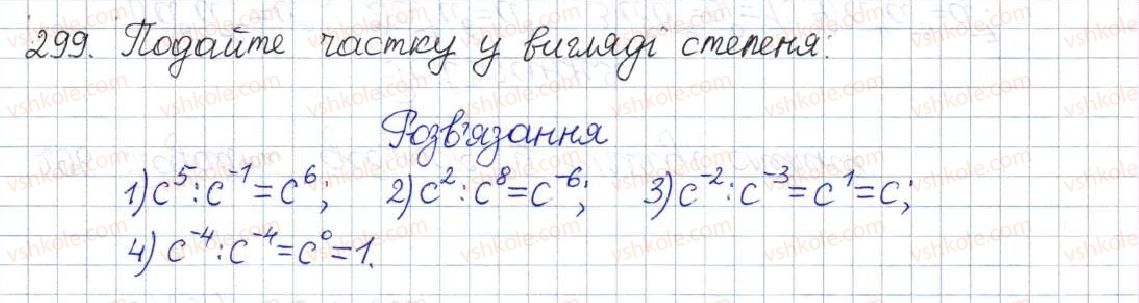 299. Подайте частку у вигляді степеня:
Розв'язання
1) c⁵ : c⁻¹ = c⁶; 2) c² : c⁸ = c⁻⁶; 3) c⁻² : c⁻³ = c¹ = c;
4) c⁻⁴ : c⁻⁴ = c⁰ = 1.
vshkole.com